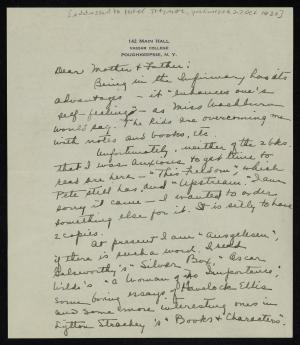 142 MAIN HALL
VASSAR COLLEGE
POUGHKEEPSIE, N. Y.
Dear Mother & Father:
Being in the Infirmary has its
advantages - it "enhances one's
self-feeling" - as Miss Washburn
would say. The kids are overcoming me
with notes and books, etc.
Unfortunately, neither of the 2 bks.
that I was anxious to get time to
read are here - "This Freedom", which
Pete still has, and "Upstream." I am
sorry it came - I wanted to order
something else for it. It is silly to have
2 copies.
At present I am "Ausgelesen",
if there is such a word. I read
Galsworthy's "Silver Box", Oscar
Wilde's "A Woman of No Importance,"
some boring essays of Havelock Ellis
and some more interesting ones in
Lytton Strachey's "Books & Characters".